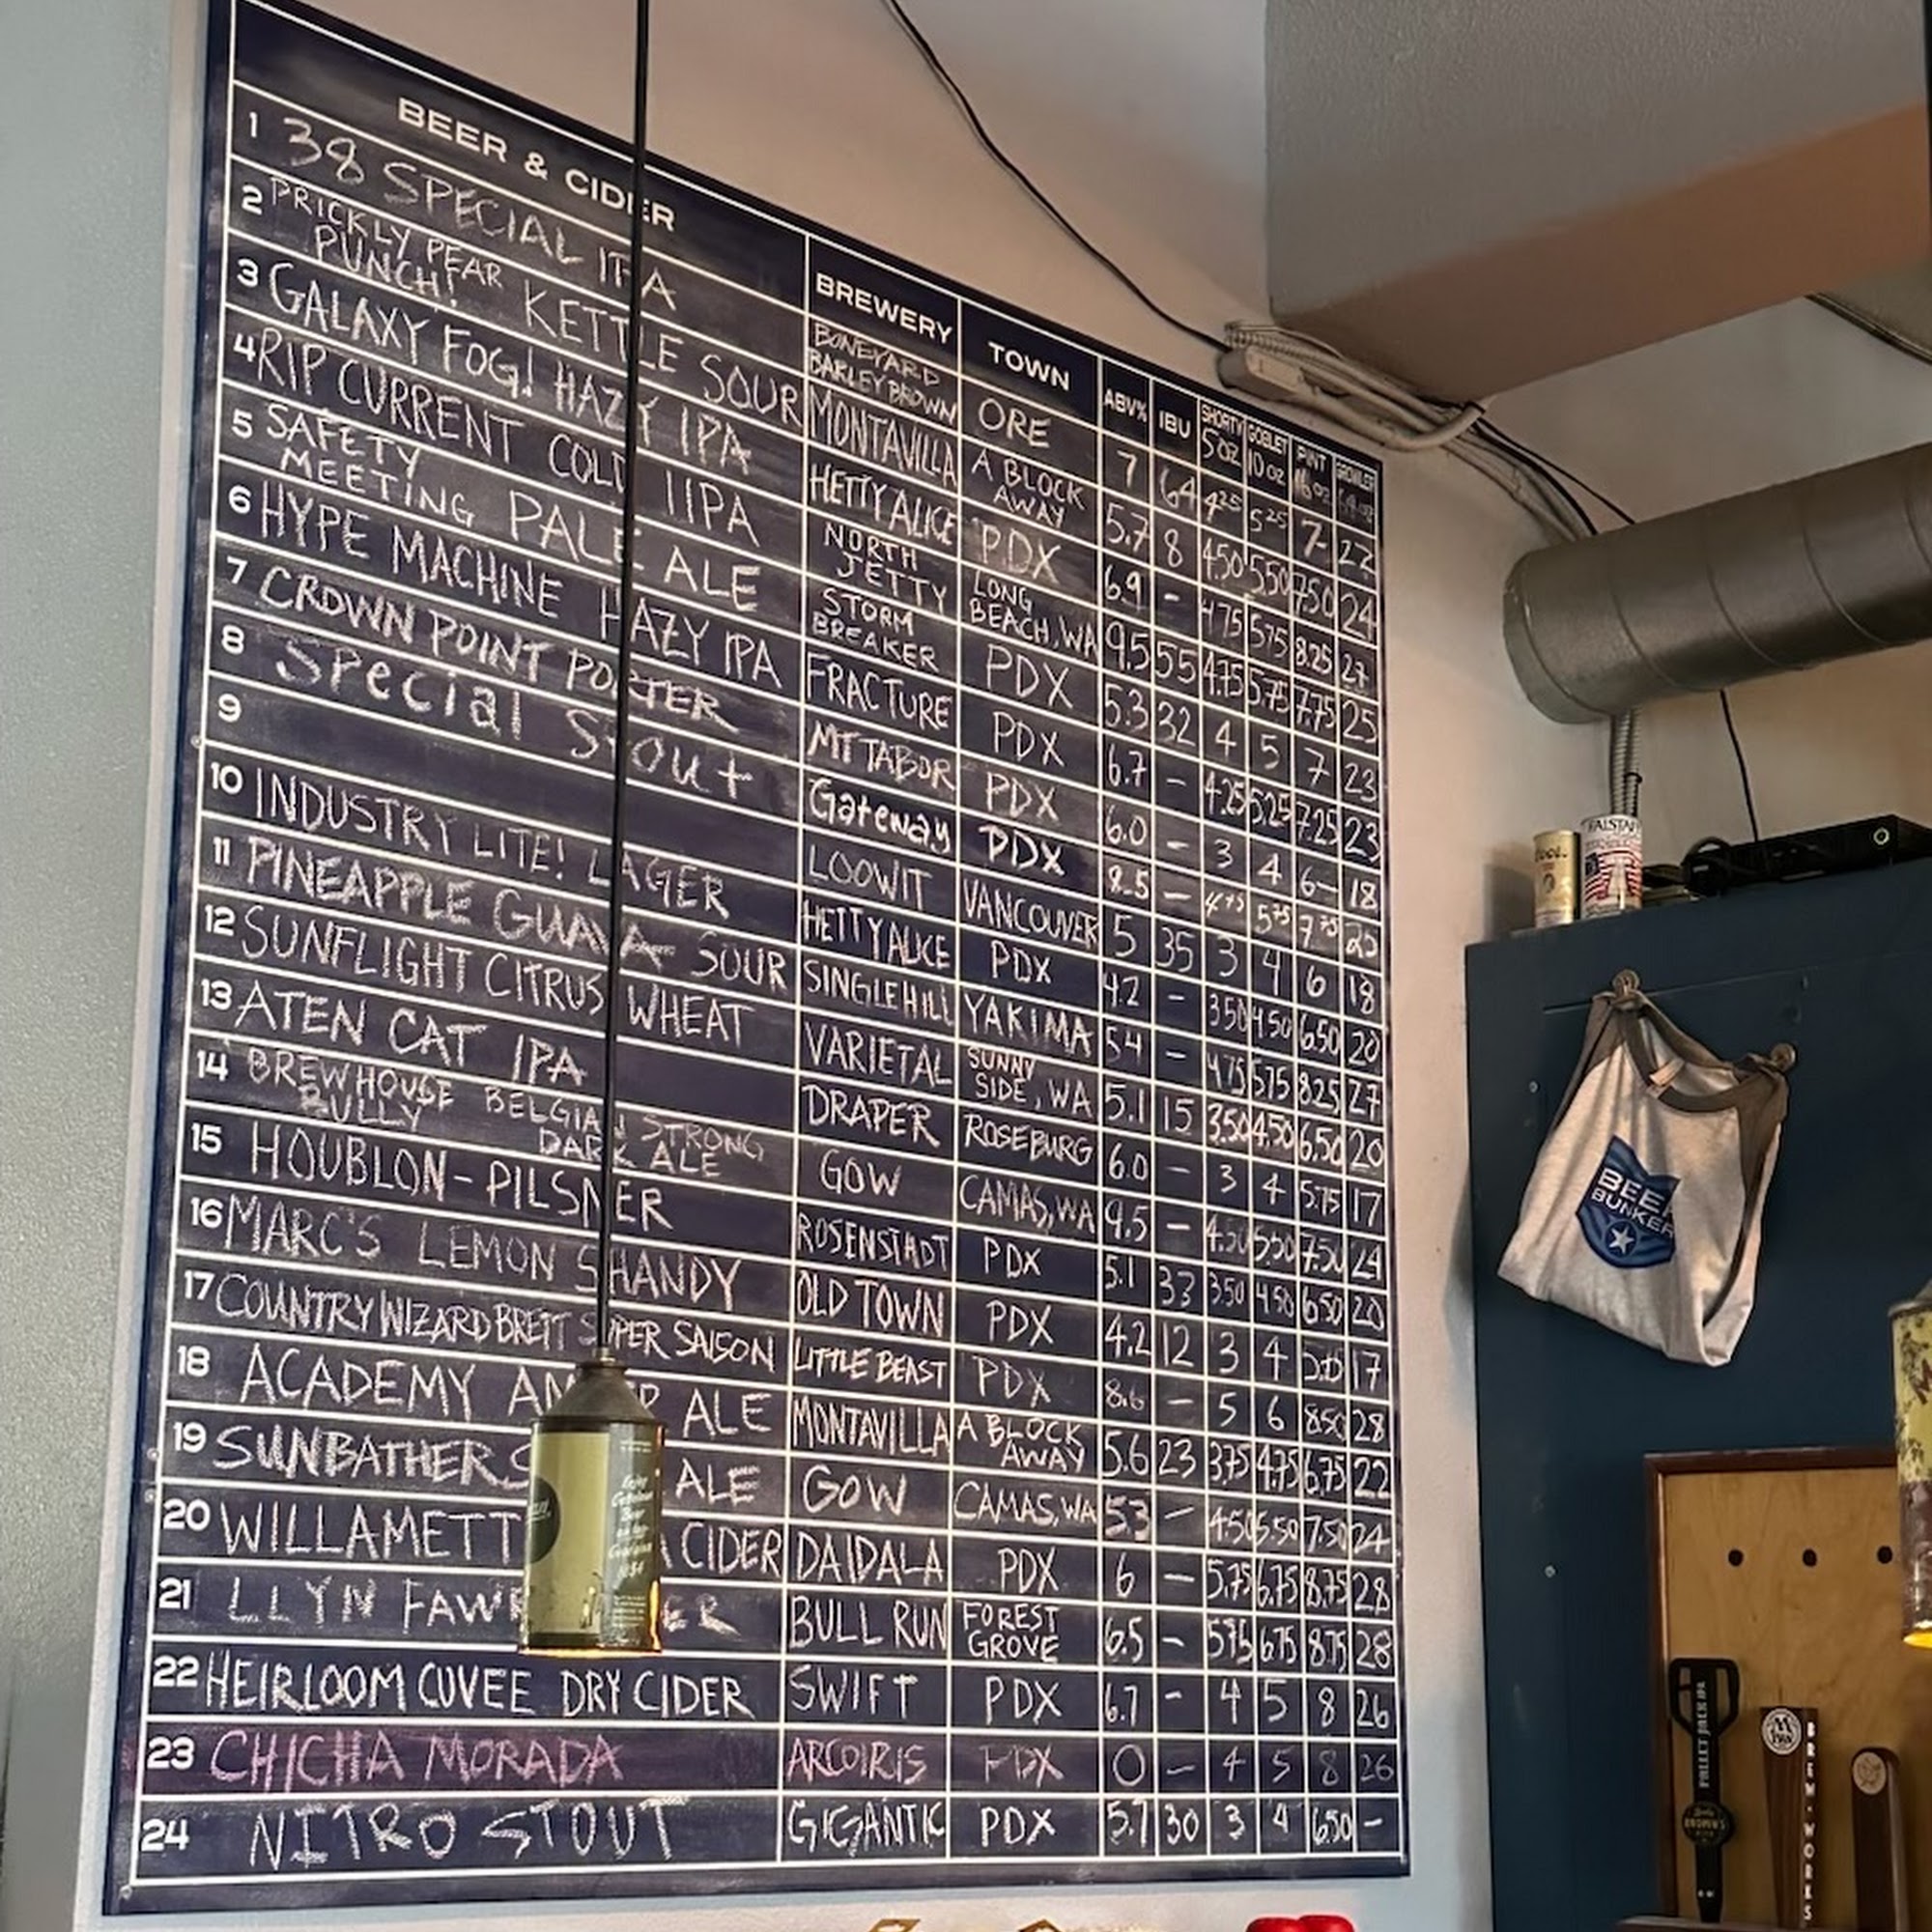 BEER & CIDER BREWERY TOWN ABV% IBU SHORTY 5 OZ GOBLET 10 OZ PINT 16 OZ GROWLER 64 OZ
1 38 SPECIAL IPA BONEYARD BARLEY BROWN ORE 7 64 4.25 5.25 7- 22
2 PRICKLY PEAR PUNCH! KETTLE SOUR MONTAVILLA A BLOCK AWAY 5.7 8 4.50 5.50 7.50 24
3 GALAXY FOG! HAZY IPA HETTY ALICE PDX 6.9 - 4.75 5.75 8.25 27
4 RIP CURRENT COLD IIPA NORTH JETTY LONG BEACH, WA 9.5 55 4.75 5.75 7.75 25
5 SAFETY MEETING PALE ALE STORM BREAKER PDX 5.3 32 4 5 7 23
6 HYPE MACHINE HAZY IPA FRACTURE PDX 6.7 - 4.25 5.25 7.25 23
7 CROWN POINT PORTER MT TABOR PDX 6.0 - 3 4 6- 18
8 Special Stout Gateway PDX 8.5 - 4.75 5.75 7.75 25
9 LOOWIT VANCOUVER 5 35 3 4 6 18
10 INDUSTRY LITE! LAGER HETTY ALICE PDX 4.2 - 3.50 4.50 6.50 20
11 PINEAPPLE GUAVA SOUR SINGLEHILL YAKIMA 5.4 - 4.75 5.75 8.25 27
12 SUNFLIGHT CITRUS WHEAT VARIETAL SUNNY SIDE, WA 5.1 15 3.50 4.50 6.50 20
13 ATEN CAT IPA DRAPER ROSEBURG 6.0 - 3 4 5.75 17
14 BREWHOUSE BULLY BELGIAN STRONG DARK ALE GOW CAMAS, WA 9.5 - 4.50 5.50 7.50 24
15 HOUBLON - PILSNER ROSENSTADT PDX 5.1 33 3.50 4.50 6.50 20
16 MARC'S LEMON SHANDY OLD TOWN PDX 4.2 12 3 4 17
17 COUNTRY WIZARD BRETT SUPER SAISON LITTLE BEAST PDX 8.6 - 5 6 8.50 28
18 ACADEMY AMBER ALE MONTAVILLA A BLOCK AWAY 5.6 23 3.75 4.75 6.75 22
19 SUNBATHER ALE GOW CAMAS, WA 5.3 - 4.50 5.50 7.50 24
20 WILLAMETT CIDER DAIDALA PDX 6 - 5.75 6.75 8.75 28
21 LLYN FAWR BULL RUN FOREST GROVE 6.5 - 5.75 6.75 8.75 28
22 HEIRLOOM CUVEE DRY CIDER SWIFT PDX 6.7 - 4 5 8 26
23 CHICHA MORADA ARCOIRIS PDX 0 - 4 5 8 26
24 NITRO STOUT GIGANTIC PDX 5.7 30 3 4 6.50 -
FALSTAFF
BEER
BUNKER
PALLET JACK IPA
BREW·WORKS